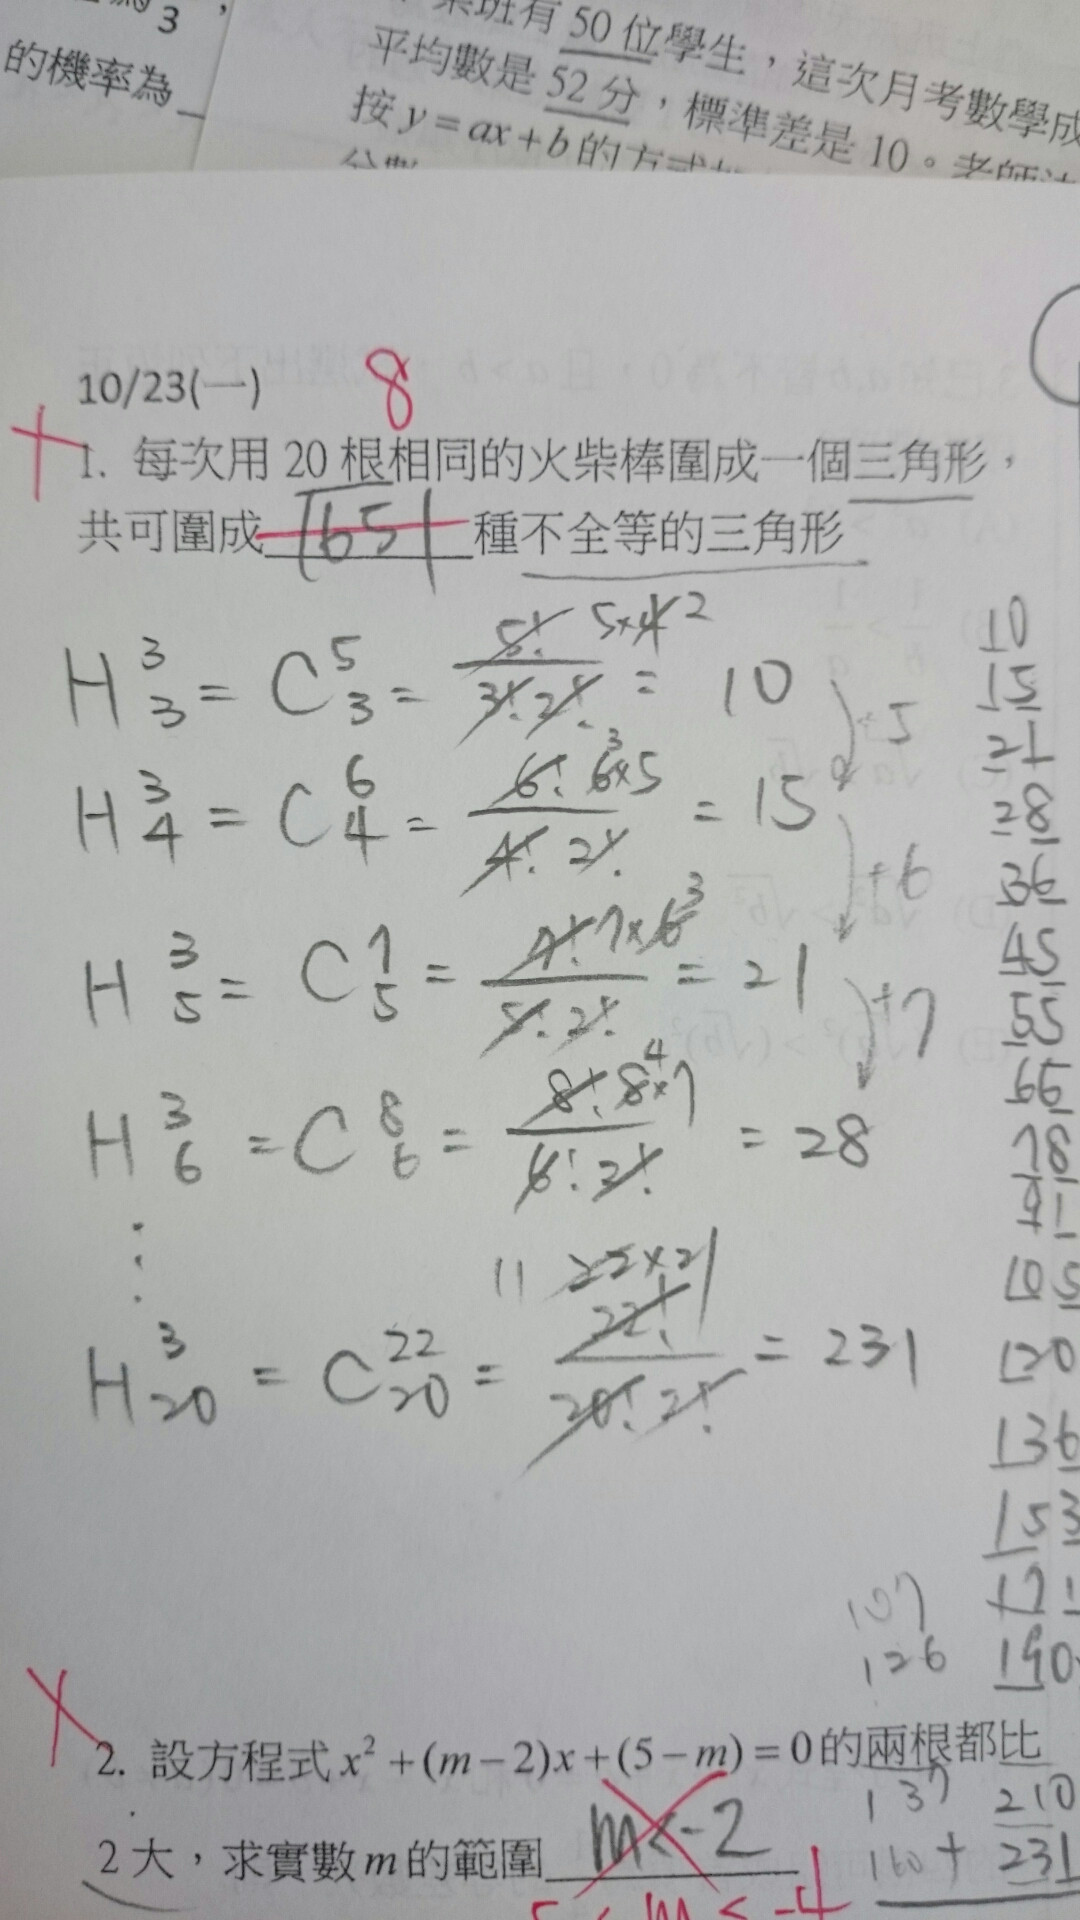 3，
的機率為
班有 50 位學生，這次月考數學成
平均數是 52 分，標準差是 10。老師
按 y = ax + b 的方式
分數
10/23(一) 8
1. 每次用 20 根相同的火柴棒圍成一個三角形，
共可圍成 1651 種不全等的三角形
H³₃ = C⁵₃ = 5! 5×4 2 / 3! 2! = 10
+5
H³₄ = C⁶₄ = 6! 6×5 3 / 4! 2! = 15
+6
H³₅ = C⁷₅ = 7! 7×6 3 / 5! 2! = 21
+7
H³₆ = C⁸₆ = 8! 8×7 4 / 6! 2! = 28
⋮
11 22×21
H³₂₀ = C²²₂₀ = 22! / 20! 2! = 231
10
15
21
28
36
45
55
66
78
91
105
120
136
153
171
190
210
+ 231
107
126
137
160
2. 設方程式 x² + (m − 2)x + (5 − m) = 0 的兩根都比
2 大，求實數 m 的範圍 m < -2
5 < m < -4